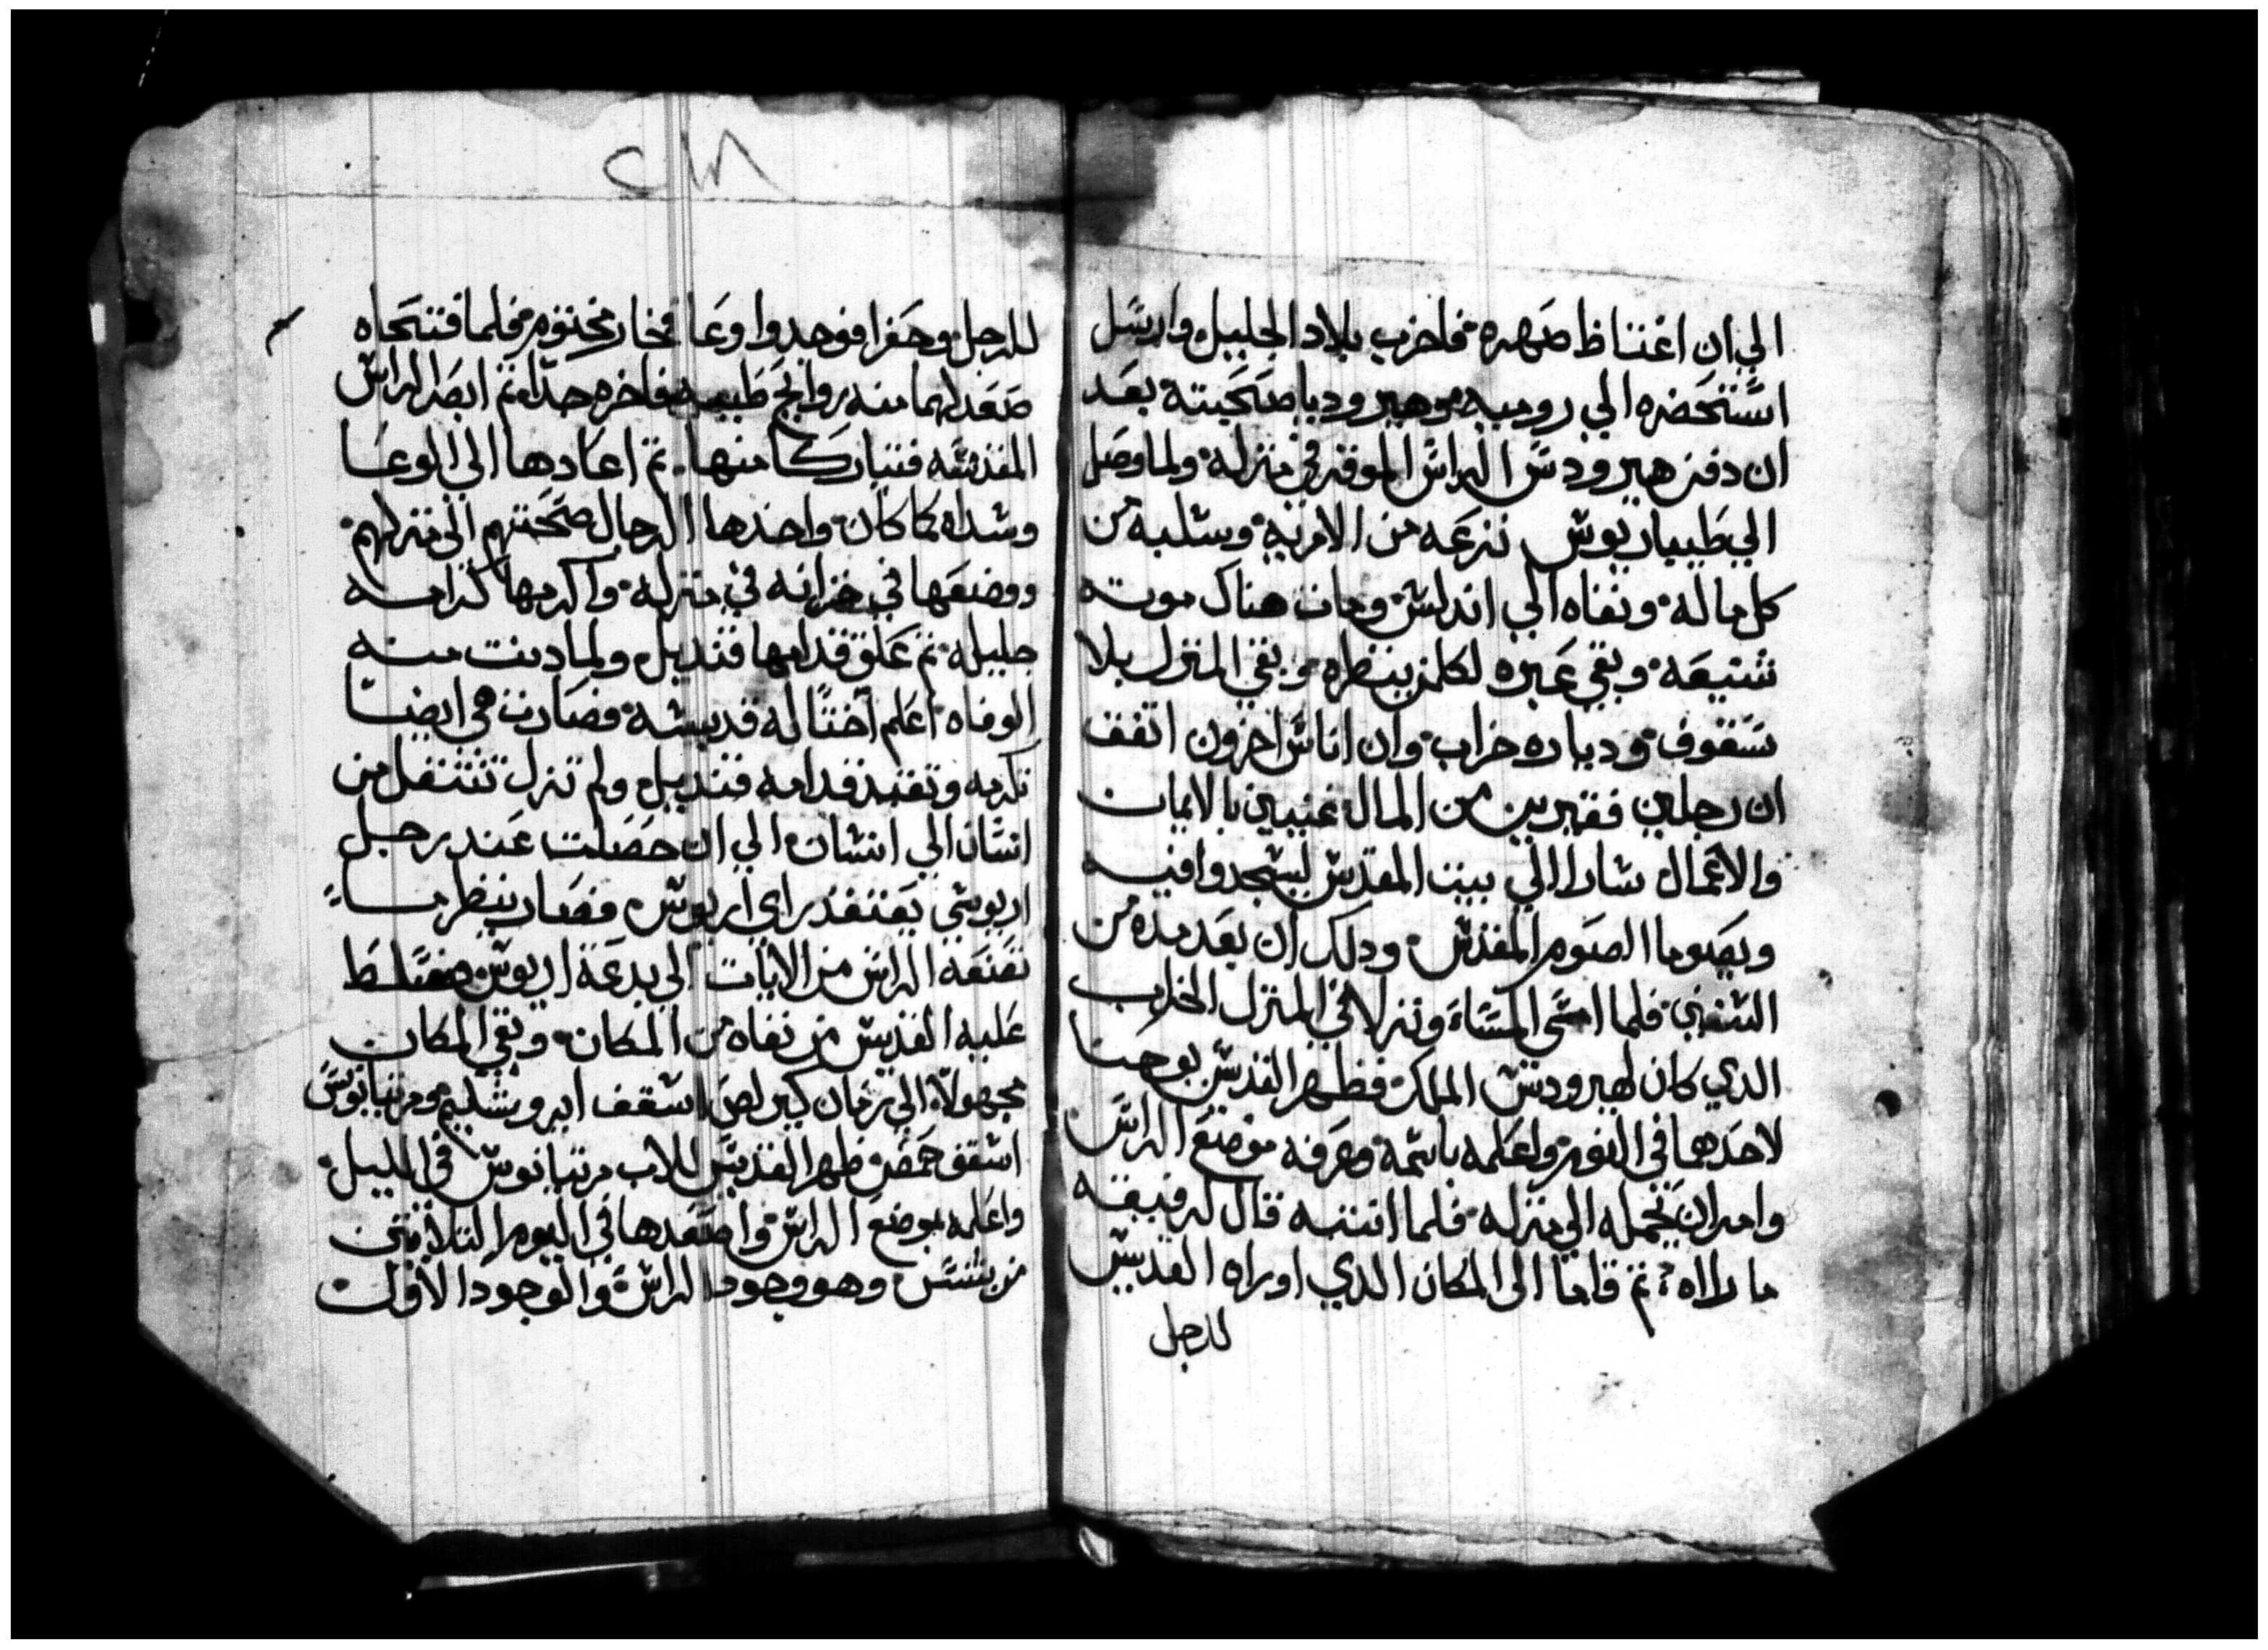 الي ان اغتاظ صهره فاخرب بلاد الجليل وارسل
استحضره الي روميه وهيروديا صحبته بعد
ان دفن هيرودس الراس الموقر في منزله ولما وصل
الي طيباريوس نزعه من الامريه وسلبه من
كل ماله ونفاه الي اندلس ومات هناك موته
شنيعه وبقي عبره لكلمن ينظره وبقي المنزل بلا
سقوف ودياره خراب وان اناس اخرون اتفف
ان رجلين فقيرين من المال غنيين بالايمان
والاعمال سارا الي بيت المقدس ليسجدوا فيه
ويصوما الصوم المقدس ودلك ان بعد مده من
السنين فلما امسى المساء ونزلا في المنزل الخراب
الدي كان لهيرودس الملك فظهر القديس يوحنا
لاحدهما في النوم واعلمه باسمه وعرفه موضع الراس
وامر ان يحمله الي منزله فلما انتبه قال لرفيقه
ما راه ثم قاما الى المكان الدي اوراه القديس
للرجل
٢١٨
للرجل وحفرا فوجدوا وعا فخار مختوم فلما فتحاه
صعد لهما منه روايح طيبه فاخره جدا ثم ابصر الراس
المقدسه فتباركا منها ثم اعادها الي الوعا
وشداه كما كان واخدها الرجال صحبتهم الي منزلهم
ووضعها في خزانه في منزله واكرمها كرامه
جليله ثم علق قدامها قنديل ولما دنت منه
الوفاه اعلم اختا له قديسه فصارت هي ايضا
تكرمه وتقيد قدامه قنديل ولم تزل تنتقل من
انسان الي انسان الي ان حصلت عند رجل
اريوسي يعتقد براي اريوس فصار ينظر ما
تصنعه الراس من الايات الي بدعة اريوس فسلط
عليه القديس من نفاه من المكان وبقي المكان
مجهولا الي زمان كيرلص اسقف ايروشليم ومرتيانوس
اسقف حمص ظهر القديس للاب مرتيانوس في الليل
واعلمه بموضع الراس واصعدها في اليوم التلاتين
من بشنس وهو وجود الراس والوجود الاول